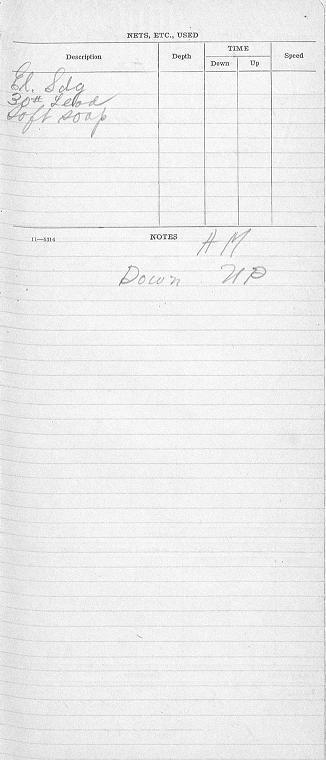 NETS, ETC., USED
Description Depth TIME Speed
Down Up
El. Sdg
30# Lead
Soft soap
11—5314 NOTES A M
Down UP